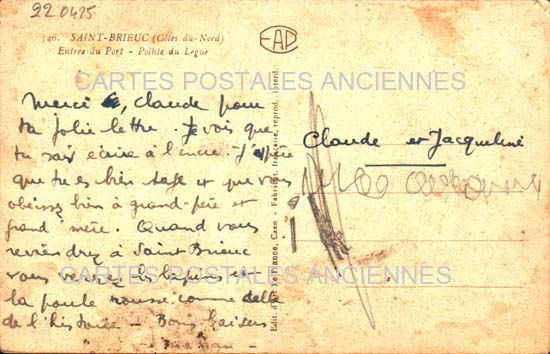 220425
546. SAINT-BRIEUC (Côtes-du-Nord)
Entrée du Port - Pointe du Légué
EAP
CARTES POSTALES ANCIENNES
Merci Claude pour
ta jolie lettre. Je vois que
tu sais écrire à l'encre. J'espère
que tu es bien sage et que vous
obéissez bien à grand-père et
grand'mère. Quand vous
reviendrez à Saint Brieuc
vous verrez les lapins et
la poule rousse comme celle
de l'histoire - Bons baisers
Claude et Jacqueline
Edit. d'Art de France, Caen - Fabrication française, reprod. interd.
CARTES POSTALES ANCIENNES